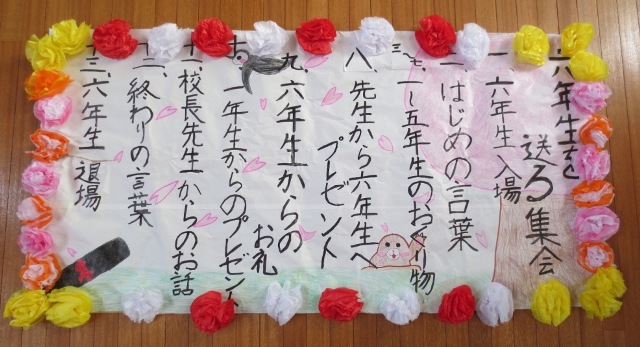 六年生を
送る集会
一、六年生入場
二、はじめの言葉
三〜七、一〜五年生のおくり物
八、先生から六年生へ
プレゼント
九、六年生からの
お礼
十、一年生からのプレゼント
十一、校長先生からのお話
十二、終わりの言葉
十三、六年生退場